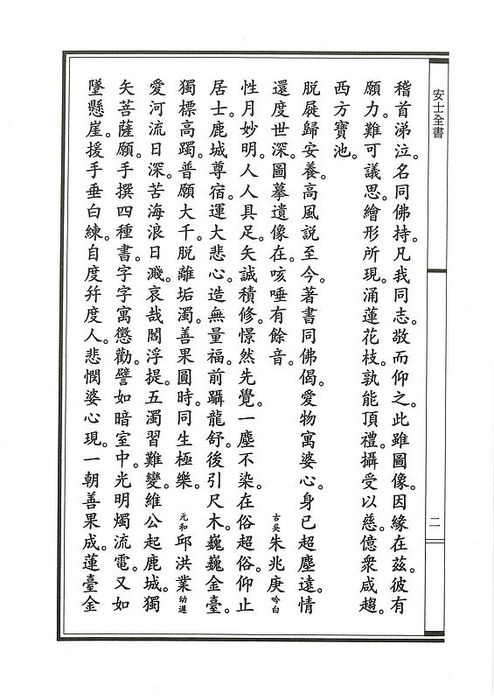 安士全書
二
稽首涕泣。名同佛持。凡我同志。敬而仰之。此雖圖像。因緣在茲。彼有
願力。難可議思。繪形所現。涌蓮花枝。孰能頂禮。攝受以慈。億衆咸趨。
西方寶池。
脫屣歸安養。高風説至今。著書同佛偈。愛物寓婆心。身已超塵遠。情
還度世深。圖摹遺像在。咳唾有餘音。 古吳朱兆庚吟白
性月妙明。人人具足。矢誠積修。憬然先覺。一塵不染。在俗超俗。仰止
居士。鹿城尊宿。運大悲心。造無量福。前躡龍舒。後引尺木。巍巍金臺。
獨標高躅。普願大千。脫離垢濁。善果圓時。同生極樂。 元和邱洪業幼遐
愛河流日深。苦海浪日濺。哀哉閻浮提。五濁習難變。維公起鹿城。獨
矢菩薩願。手撰四種書。字字寓懲勸。譬如暗室中。光明燭流電。又如
墜懸崖。援手垂白練。自度幷度人。悲憫婆心現。一朝善果成。蓮臺金